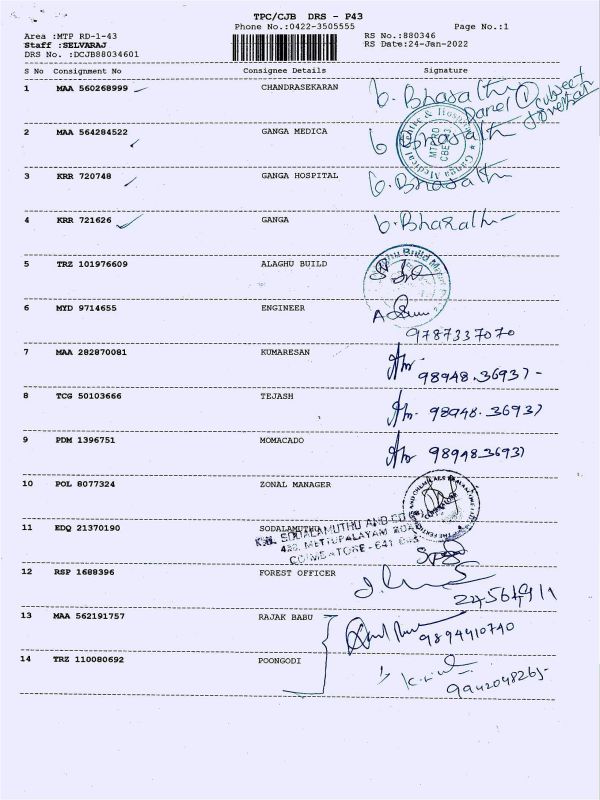 TPC/CJB DRS - P43
Phone No.:0422-3505555 Page No.:1
Area :MTP RD-1-43 RS No.:880346
Staff :SELVARAJ RS Date:24-Jan-2022
DRS No. :DCJB88034601
S No Consignment No Consignee Details Signature
1 MAA 560268999 CHANDRASEKARAN b. Bharathi
2 MAA 564284522 GANGA MEDICA b. Bharathi
3 KRR 720748 GANGA HOSPITAL b. Bharathi
4 KRR 721626 GANGA b. Bharathi
5 TRZ 101976609 ALAGHU BUILD
6 MYD 9714655 ENGINEER
9787337070
7 MAA 282870081 KUMARESAN
98948.36937
8 TCG 50103666 TEJASH 98948.36937
9 PDM 1396751 MOMACADO 98948.36937
10 POL 8077324 ZONAL MANAGER
11 EDQ 21370190 SODALAMUTHU
SODALAMUTHU AND CO
METTUPALAYAM ROAD
COIMBATORE - 641
12 RSP 1688396 FOREST OFFICER
13 MAA 562191757 RAJAK BABU
9894410740
14 TRZ 110080692 POONGODI
9942048265